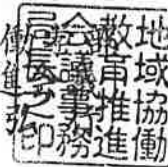 地域協働
教育推進
会議事務
局長之印